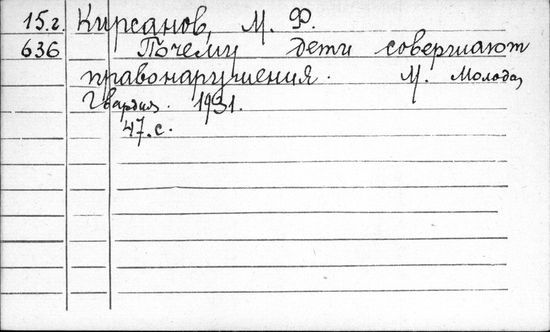 15.г. Кирсанов, М. Ф.
636 Почему дети совершают
правонарушения. М. Молодая
Гвардия. 1931.
47.с.